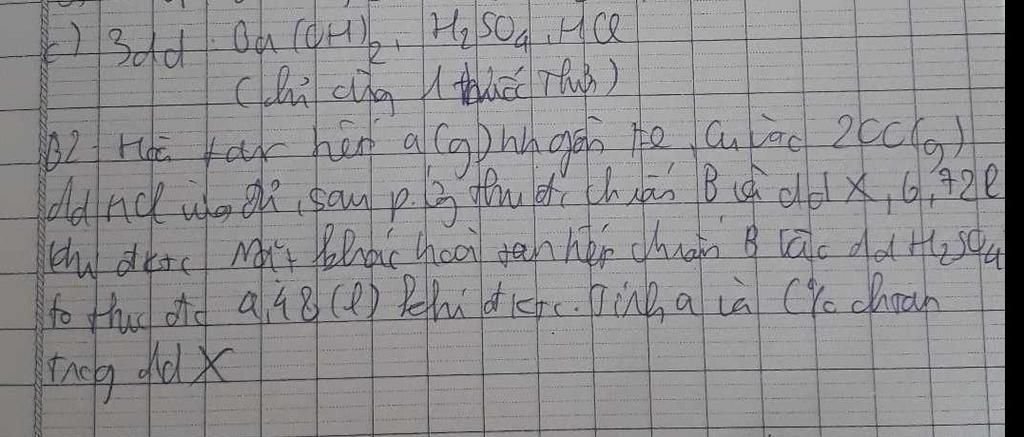 c) 3dd: Ba(OH)2, H2SO4, HCl
(Chỉ dùng 1 thuốc thử)
B2 Hòa tan hết a(g) hh gồm Fe, Cu vào 200(g)
dd HCl vừa đủ, sau p.ứ thu đc chrắn B và dd X, 6,72l
khí đktc Mặt khác hoà tan hết chrắn B vào dd H2SO4
to thu đc 4,48(l) khí đktc. Tính a và C% chtan
trog dd X